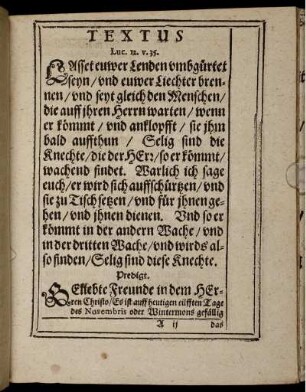 TEXTUS
Luc. 12. v. 35.
LAsset euwer Lenden vmbgürtet
seyn/ vnd euwer Liechter bren-
nen/ vnd seyt gleich den Menschen/
die auff jhren Herrn warten/ wenn
er kömmt/ vnd anklopfft/ sie jhm
bald auffthun/ Selig sind die
Knechte/ die der HErr/ so er kömmt/
wachend findet. Warlich ich sage
euch/ er wird sich auffschürtzen/ vnd
sie zu Tisch setzen/ vnd für jhnen ge-
hen/ vnd jhnen dienen. Vnd so er
kömmt in der andern Wache/ vnd
in der dritten Wache/ vnd wirds al-
so finden/ Selig sind diese Knechte.
Predigt.
GEliebte Freunde in dem HEr-
ren Christo/ Es ist auff heutigen eilfften Tage
des Novembris oder Wintermons gefällig
A ij das